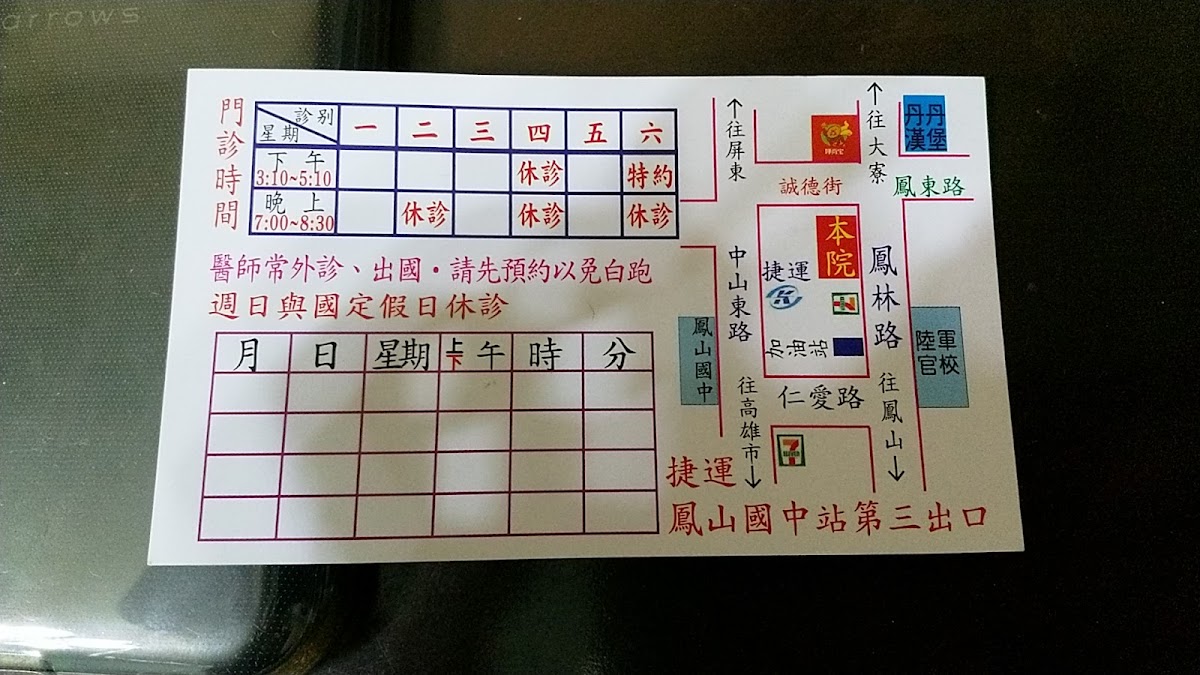 arrows
門診時間
診別 一 二 三 四 五 六
星期
下午 休診 特約
3:10~5:10
晚上 休診 休診 休診
7:00~8:30
醫師常外診、出國・請先預約以免白跑
週日與國定假日休診
月 日 星期 上下午 時 分
↑往屏東
↑往大寮
丹丹漢堡
誠德街
鳳東路
本院
捷運
中山東路
鳳林路
鳳山國中
加油站
陸軍官校
仁愛路
往高雄市↓
往鳳山↓
7
ELEVEN
捷運
鳳山國中站第三出口